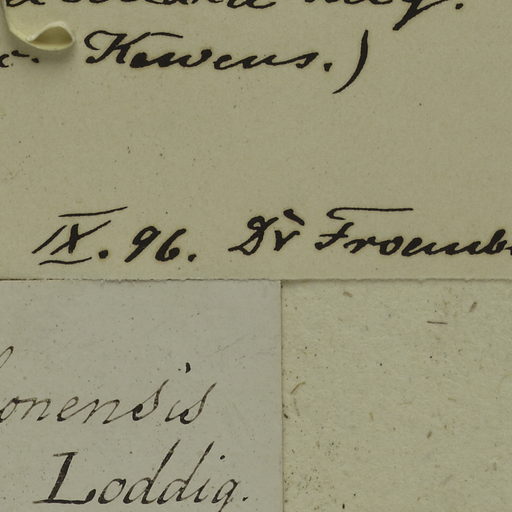 Kewens.)
IX. 96. Dr Froemb
onensis
Loddig.